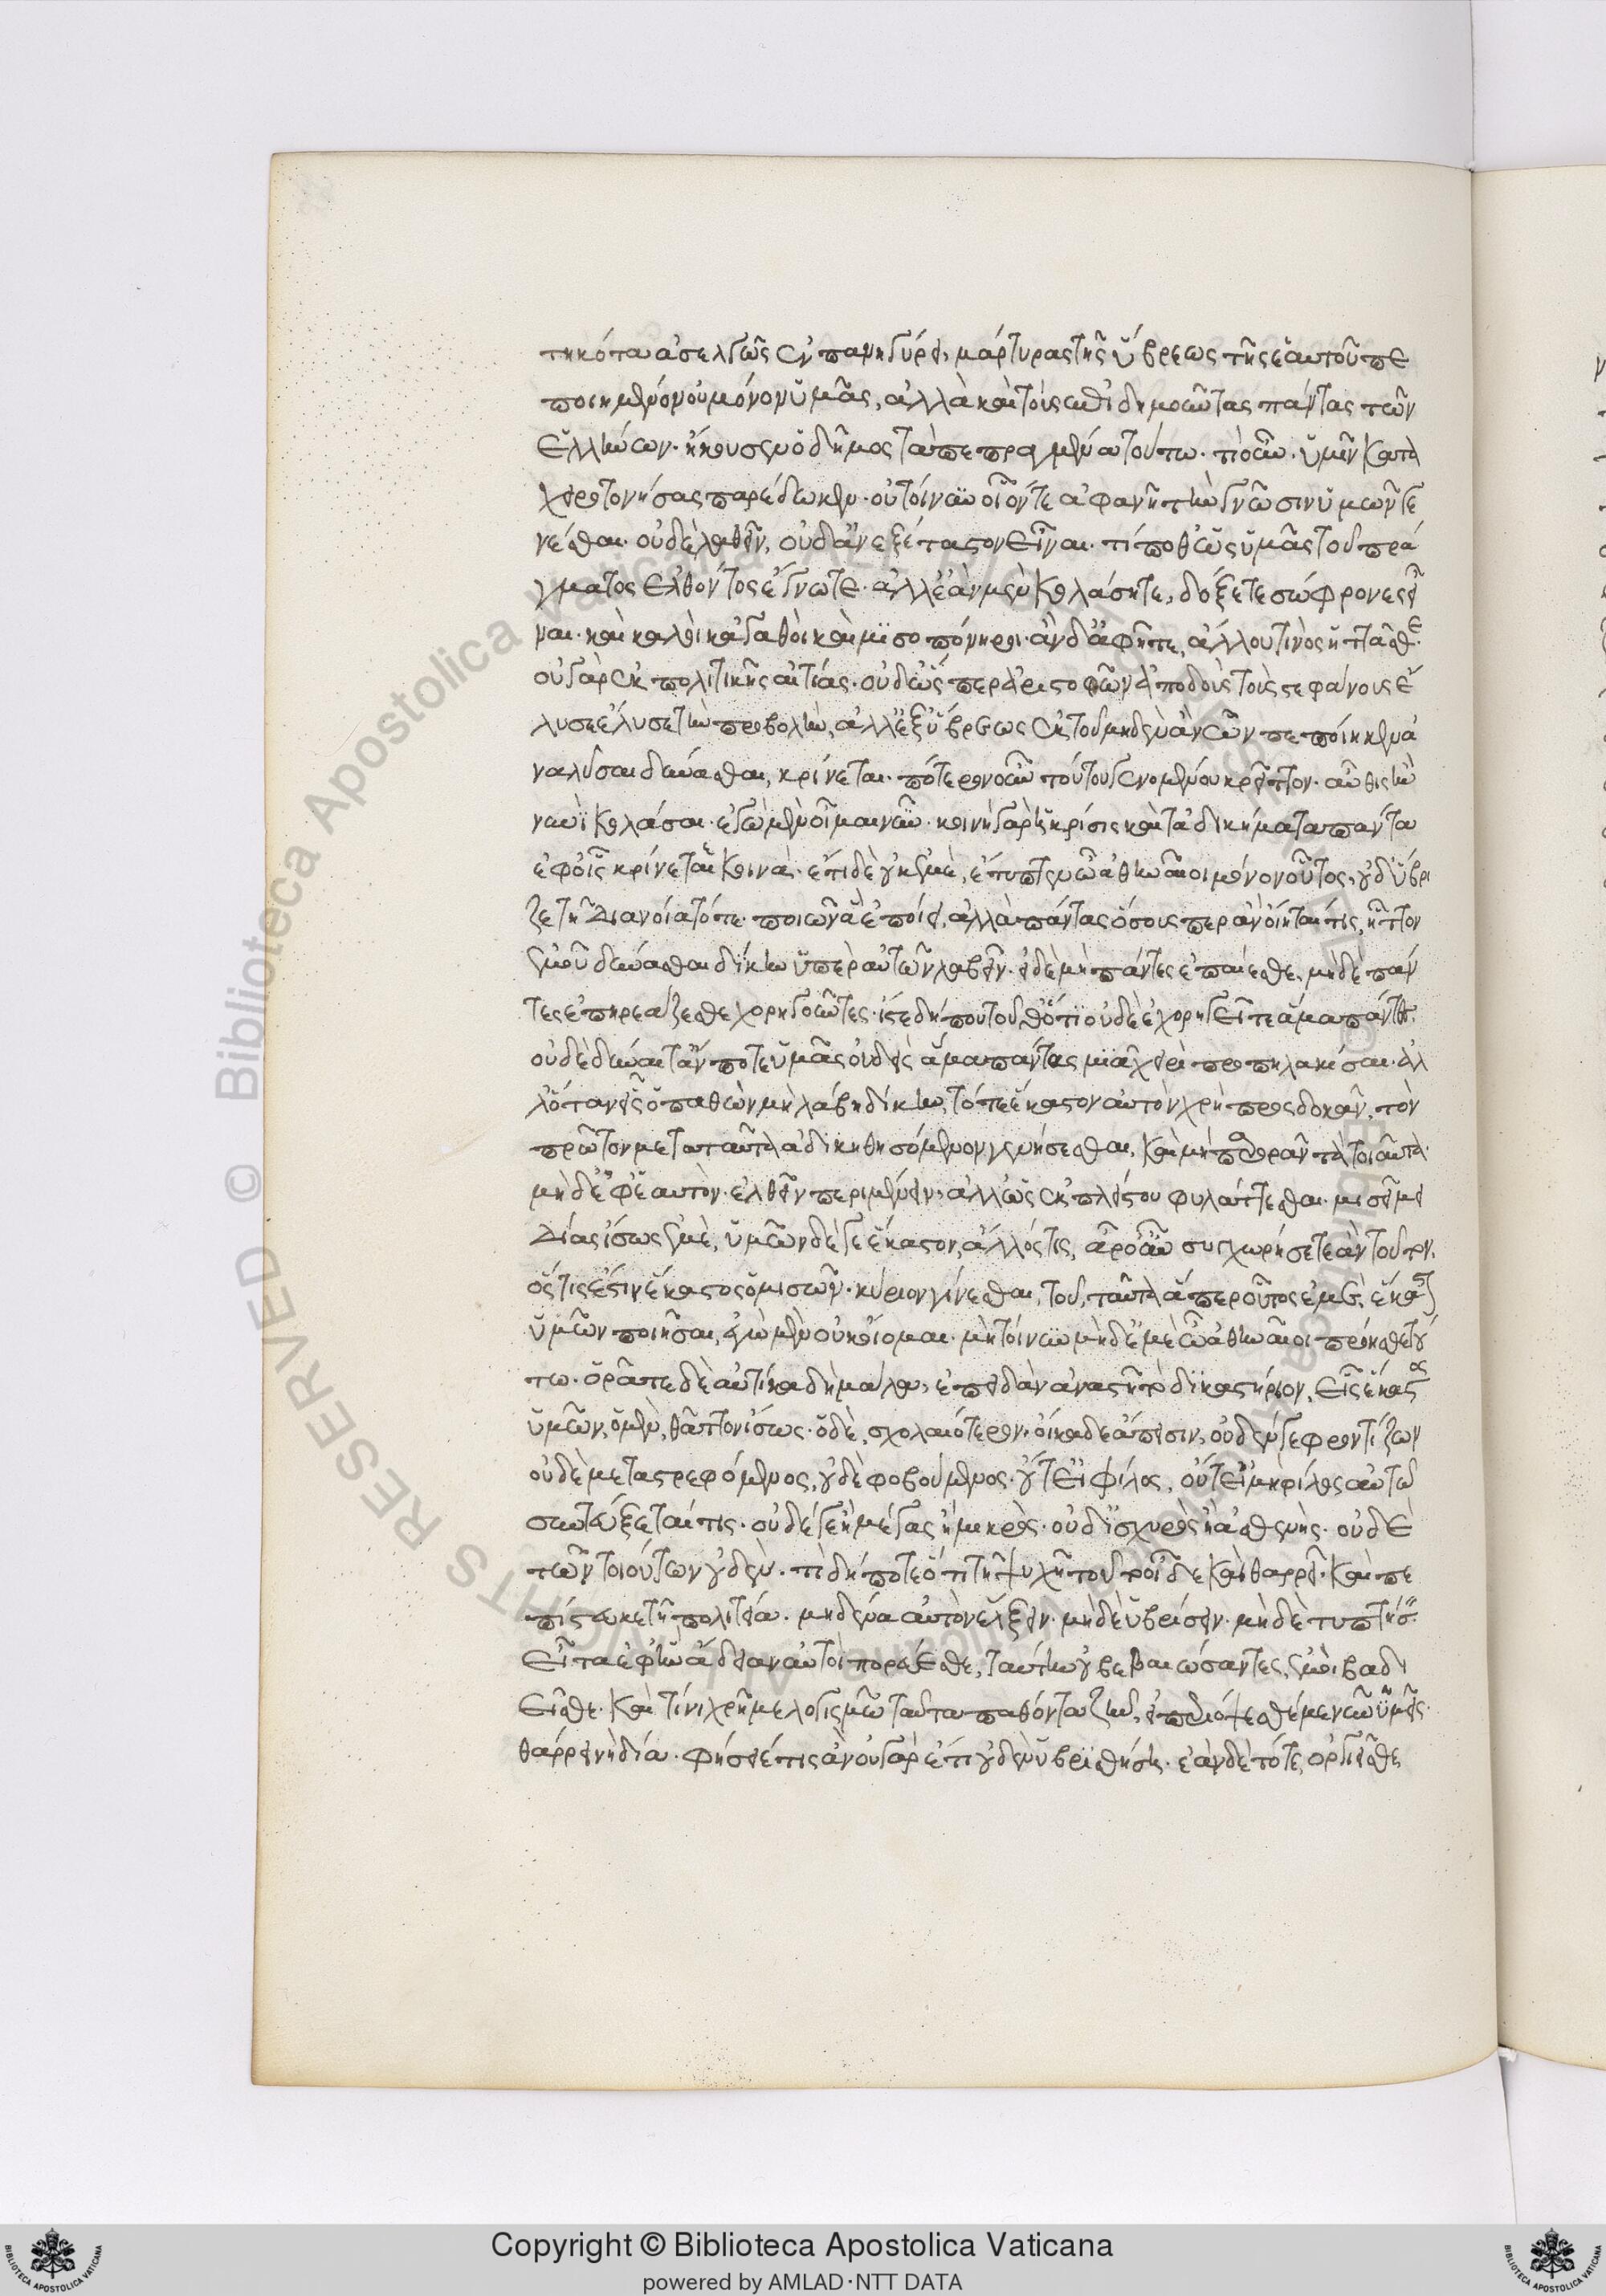 πηκότα ἀσελγῶς ἐν πανηγύρει, μάρτυρας τῆς ὕβρεως τῆς ἑαυτοῦ πε
ποιημένον οὐ μόνον ὑμᾶς, ἀλλὰ καὶ τοὺς ἐπιδημοῦντας πάντας τῶν
ἑλλήνων· ἤκουσεν ὁ δῆμος τὰ πεπραγμένα τούτω· τί οὖν· ὑμῖν κατα
χειροτονήσας παρέδωκεν· οὐ τοίνυν οἷόν τε ἀφανῆ τὴν γνῶσιν ὑμῶν γε
νέσθαι· οὐδὲ λαθεῖν, οὐδ' ἀνεξέταστον εἶναι· τί ποθ' ὡς ὑμᾶς τοῦ πρά
γματος ἐλθόντος ἔγνωτε· ἀλλ' ἐὰν μὲν κολάσητε, δόξετε σώφρονες εἶ
ναι· καὶ καλοὶ κἀγαθοὶ καὶ μισοπόνηροι· ἂν δ' ἀφῆτε, ἄλλου τινὸς ἡττᾶσθε·
οὐ γὰρ ἐκ πολιτικῆς αἰτίας· οὐδ' ὥσπερ ἀριστοφῶν ἀποδοὺς τοὺς στεφάνους ἔ
λυσε ἔλυσε τὴν προβολήν, ἀλλ' ἐξ ὕβρεως ἐκ τοῦ μηδὲν ἂν ὧν πεποίηκεν ἀ
ναλῦσαι δύνασθαι, κρίνεται· πότερον οὖν τούτου γενομένου κρεῖττον· αὖθις ἢ
νυνὶ κολάσαι· ἐγὼ μὲν οἶμαι νῦν· κοινὴ γὰρ ἡ κρίσις καὶ τἀδικήματα πάντα
ἐφ' οἷς κρίνεται κοινά· ἔτι δὲ οὐκ ἐμὲ, ἔτυπτεν ὦ ἀθηναῖοι μόνον οὗτος, οὐδ' ὕβρι
ζε τῇ διανοία τότε· ποιῶν ἃ ἐποίει, ἀλλὰ πάντας ὅσους περ ἂν οἴηταί τις, ἧττον
ἐμοῦ δύνασθαι δίκην ὑπὲρ αὑτῶν λαβεῖν· εἰ δὲ μὴ πάντες ἐπαίεσθε, μηδὲ πάν
τες ἐπηρεάζεσθε χορηγοῦντες· ἴστε δήπου τοῦθ' ὅτι οὐδὲ ἐχορηγεῖτε ἅμα πάντες·
οὐδὲ δύναιτ' ἄν ποτε ὑμᾶς οὐδεὶς ἅμα πάντας μιᾷ χειρὶ προπηλακίσαι· ἀλ
λ' ὅταν εἷς ὁ παθὼν μὴ λάβη δίκην, τότε ἕκαστον αὐτὸν χρὴ προσδοκᾶν, τὸν
πρῶτον μετὰ ταῦτα ἀδικηθησόμενον γενήσεσθαι, καὶ μὴ παρορᾶν τὰ τοιαῦτα·
μηδὲ ἐφ' ἑαυτὸν· ἐλθεῖν περιμένειν, ἀλλ' ὡς ἐκ πλείστου φυλάττεσθαι· μισεῖ με
δίας ἴσως ἐμὲ, ὑμῶν δέ γε ἕκαστον, ἄλλός τις, ἆρ' οὖν συγχωρήσετε ἂν τοῦτον,
ὅστις ἐστὶν ἕκαστος ὁ μισῶν· κύριον γίνεσθαι, τοῦ, ταῦτα ἅπερ οὗτος ἐμὲ, ἕκαστ
ὑμῶν ποιῆσαι, ἐγὼ μὲν οὐκ οἴομαι· μὴ τοίνυν μηδὲ ἐμὲ ὦ ἀθηναῖοι πρόησθε τού
τω· ὁρᾶτε δὲ αὐτίκα δὴ μάλα, ἐπειδὰν ἀναστῇ τὸ δικαστήριον, εἷς ἕκαστος
ὑμῶν, ὁ μὲν, θᾶττον ἴσως· ὁ δὲ, σχολαιότερον· οἴκαδε ἄπεισιν, οὐδὲν γε φροντίζων
οὐδὲ μεταστρεφόμενος, οὐδὲ φοβούμενος· οὔτε εἰ φίλος, οὔτε εἰ μὴ φίλος αὐτῷ
συντεύξεταί τις· οὐδέ γε ἢ μέγας ἢ μικρὸς· οὐδ' ἰσχυρὸς ἢ ἀσθενὴς· οὐδὲ
τῶν τοιούτων οὐδὲν· τί δήποτε ὅτι τῇ ψυχῇ τοῦτ' οἶδε καὶ θαρρεῖ· καὶ πε
πίστευκε τῇ πολιτεία· μηδένα αὐτὸν ἕλξειν· μηδὲ ὑβρίσειν· μηδὲ τυπτήσειν·
εἶτα ἐφ' ἣν ἄδειαν αὐτοὶ πορεύεσθε, ταύτην οὐ βεβαιώσαντες, ἐμοὶ βαδι
εῖσθε· καὶ τίνι χρή με λογισμῷ ταῦτα παθόντα ζῆν, εἰ περιόψεσθέ με νῦν ὑμεῖς·
θάρρει νὴ δία· φήσειέ τις ἂν οὐ γὰρ ἔτι οὐδὲν ὑβρισθήσῃ· ἐὰν δὲ τότε, ὀργιεῖσθε